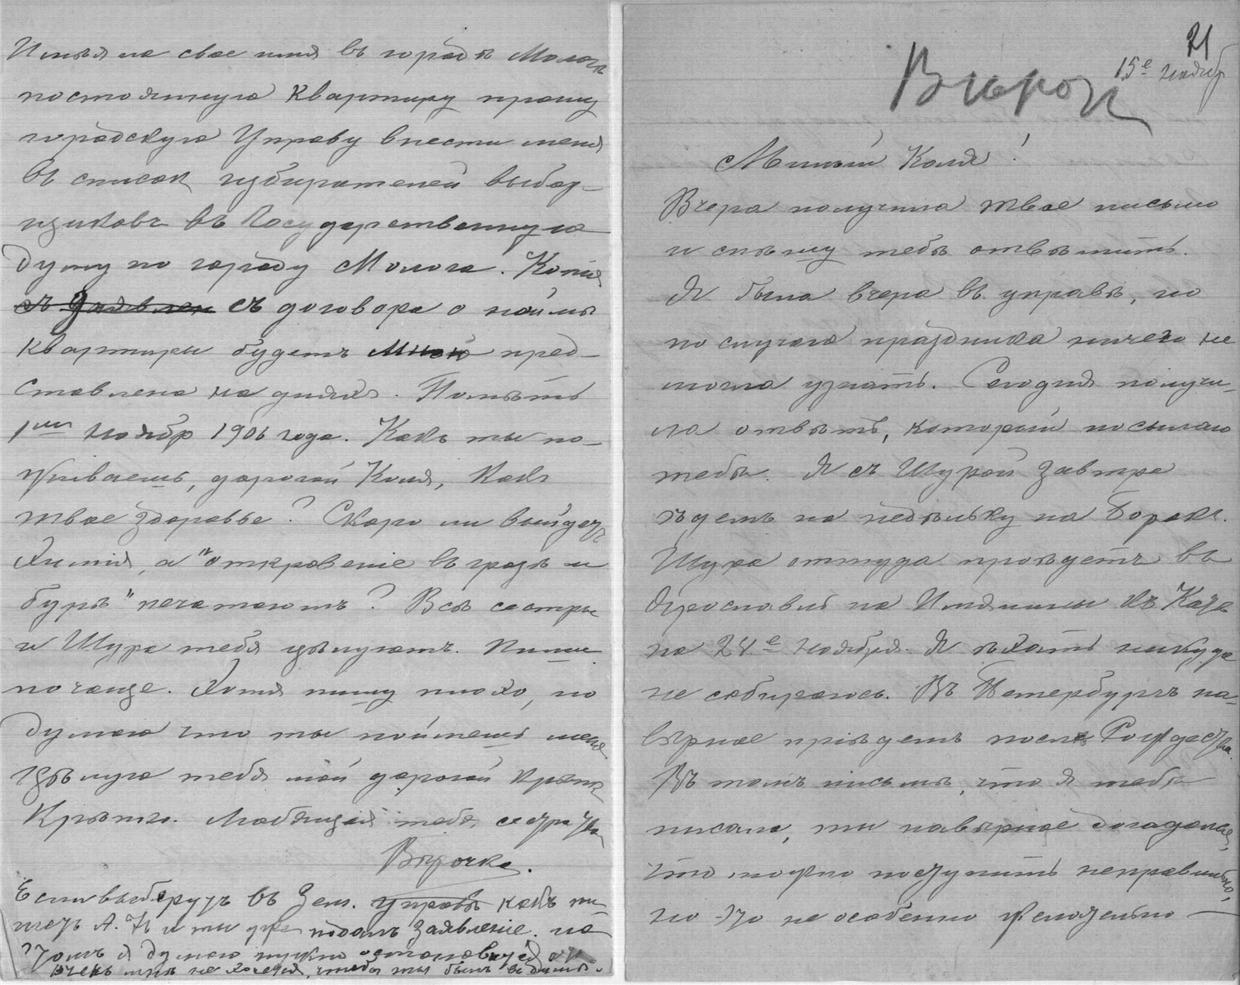 Имѣя на свое имя въ городѣ Молога
постоянную квартиру прошу
городскую Управу внести меня
въ список избирателей выбор-
щиковъ въ Государственную
думу по городу Молога. Копия
съ заявлен съ договора о наймѣ
квартиры будетъ мною пред-
ставлена на дняхъ. Помѣтъ
ноябр 1906 года. Какъ ты по-
живаешь, дорогой Коля, какъ
твое здоровье? Скоро ли выйдетъ
Химія, а "откровеніе въ грозѣ и
бурѣ" печатаютъ? Всѣ сестры
и Шура тебя цѣлуютъ. Пиши
почаще. Хотя пишу плохо, но
думаю что ты поймешь меня
Цѣлую тебя мой дорогой крѣпко
Крѣпко. Любящая тебя сестра твоя
Вѣрочка.
Если выберутъ въ Зем. управѣ какъ пи-
шетъ А. Н и ты уже подалъ заявленіе. на
этомъ я думаю нужно остановиться
очень мнѣ не хочется, чтобы ты былъ
21
15е ноябр
Вѣрой
Милый Коля!
Вчера получила твое письмо
и спѣшу тебѣ отвѣтить.
Я была вчера въ управѣ, но
по случаю праздника ничего не
могла узнать. Сегодня получи-
ла отвѣтъ, который посылаю
тебѣ. Я съ Шурой завтра
ѣдемъ на недѣльку на Борокъ.
Шура оттуда проѣдетъ въ
Ярославль на Имянины къ Катѣ
на 24е ноября. Я ѣхать никуда
не собираюсь. Въ Петербургъ на-
вѣрное пріѣдемъ послѣ Рождества.
Въ томъ письмѣ, что я тебѣ
писала, ты навѣрное догадался,
что можно поступить неправильно,
но это не особенно желательно —